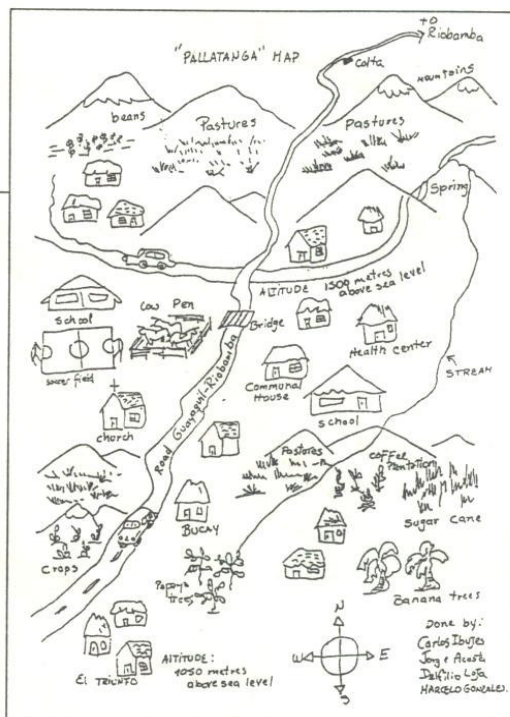 "PALLATANGA" MAP
TO
Riobamba
Colta
MOUNTAINS
beans
Pastures
Pastures
Spring
ALTITUDE 1500 metres
above sea level
School
Cow Pen
Bridge
Health Center
soccer field
Communal
House
STREAM
School
church
Road Guayaquil-Riobamba
Pastures
coffee
Plantation
Sugar Cane
BUCAY
Crops
Papaya
trees
Banana trees
EL TRIUNFO
ALTITUDE:
1050 metres
above sea level
N
W
E
S
Done by:
Carlos Ibujes
Jorge Acosta
Delfilio Loja
MARCELO GONZALES.